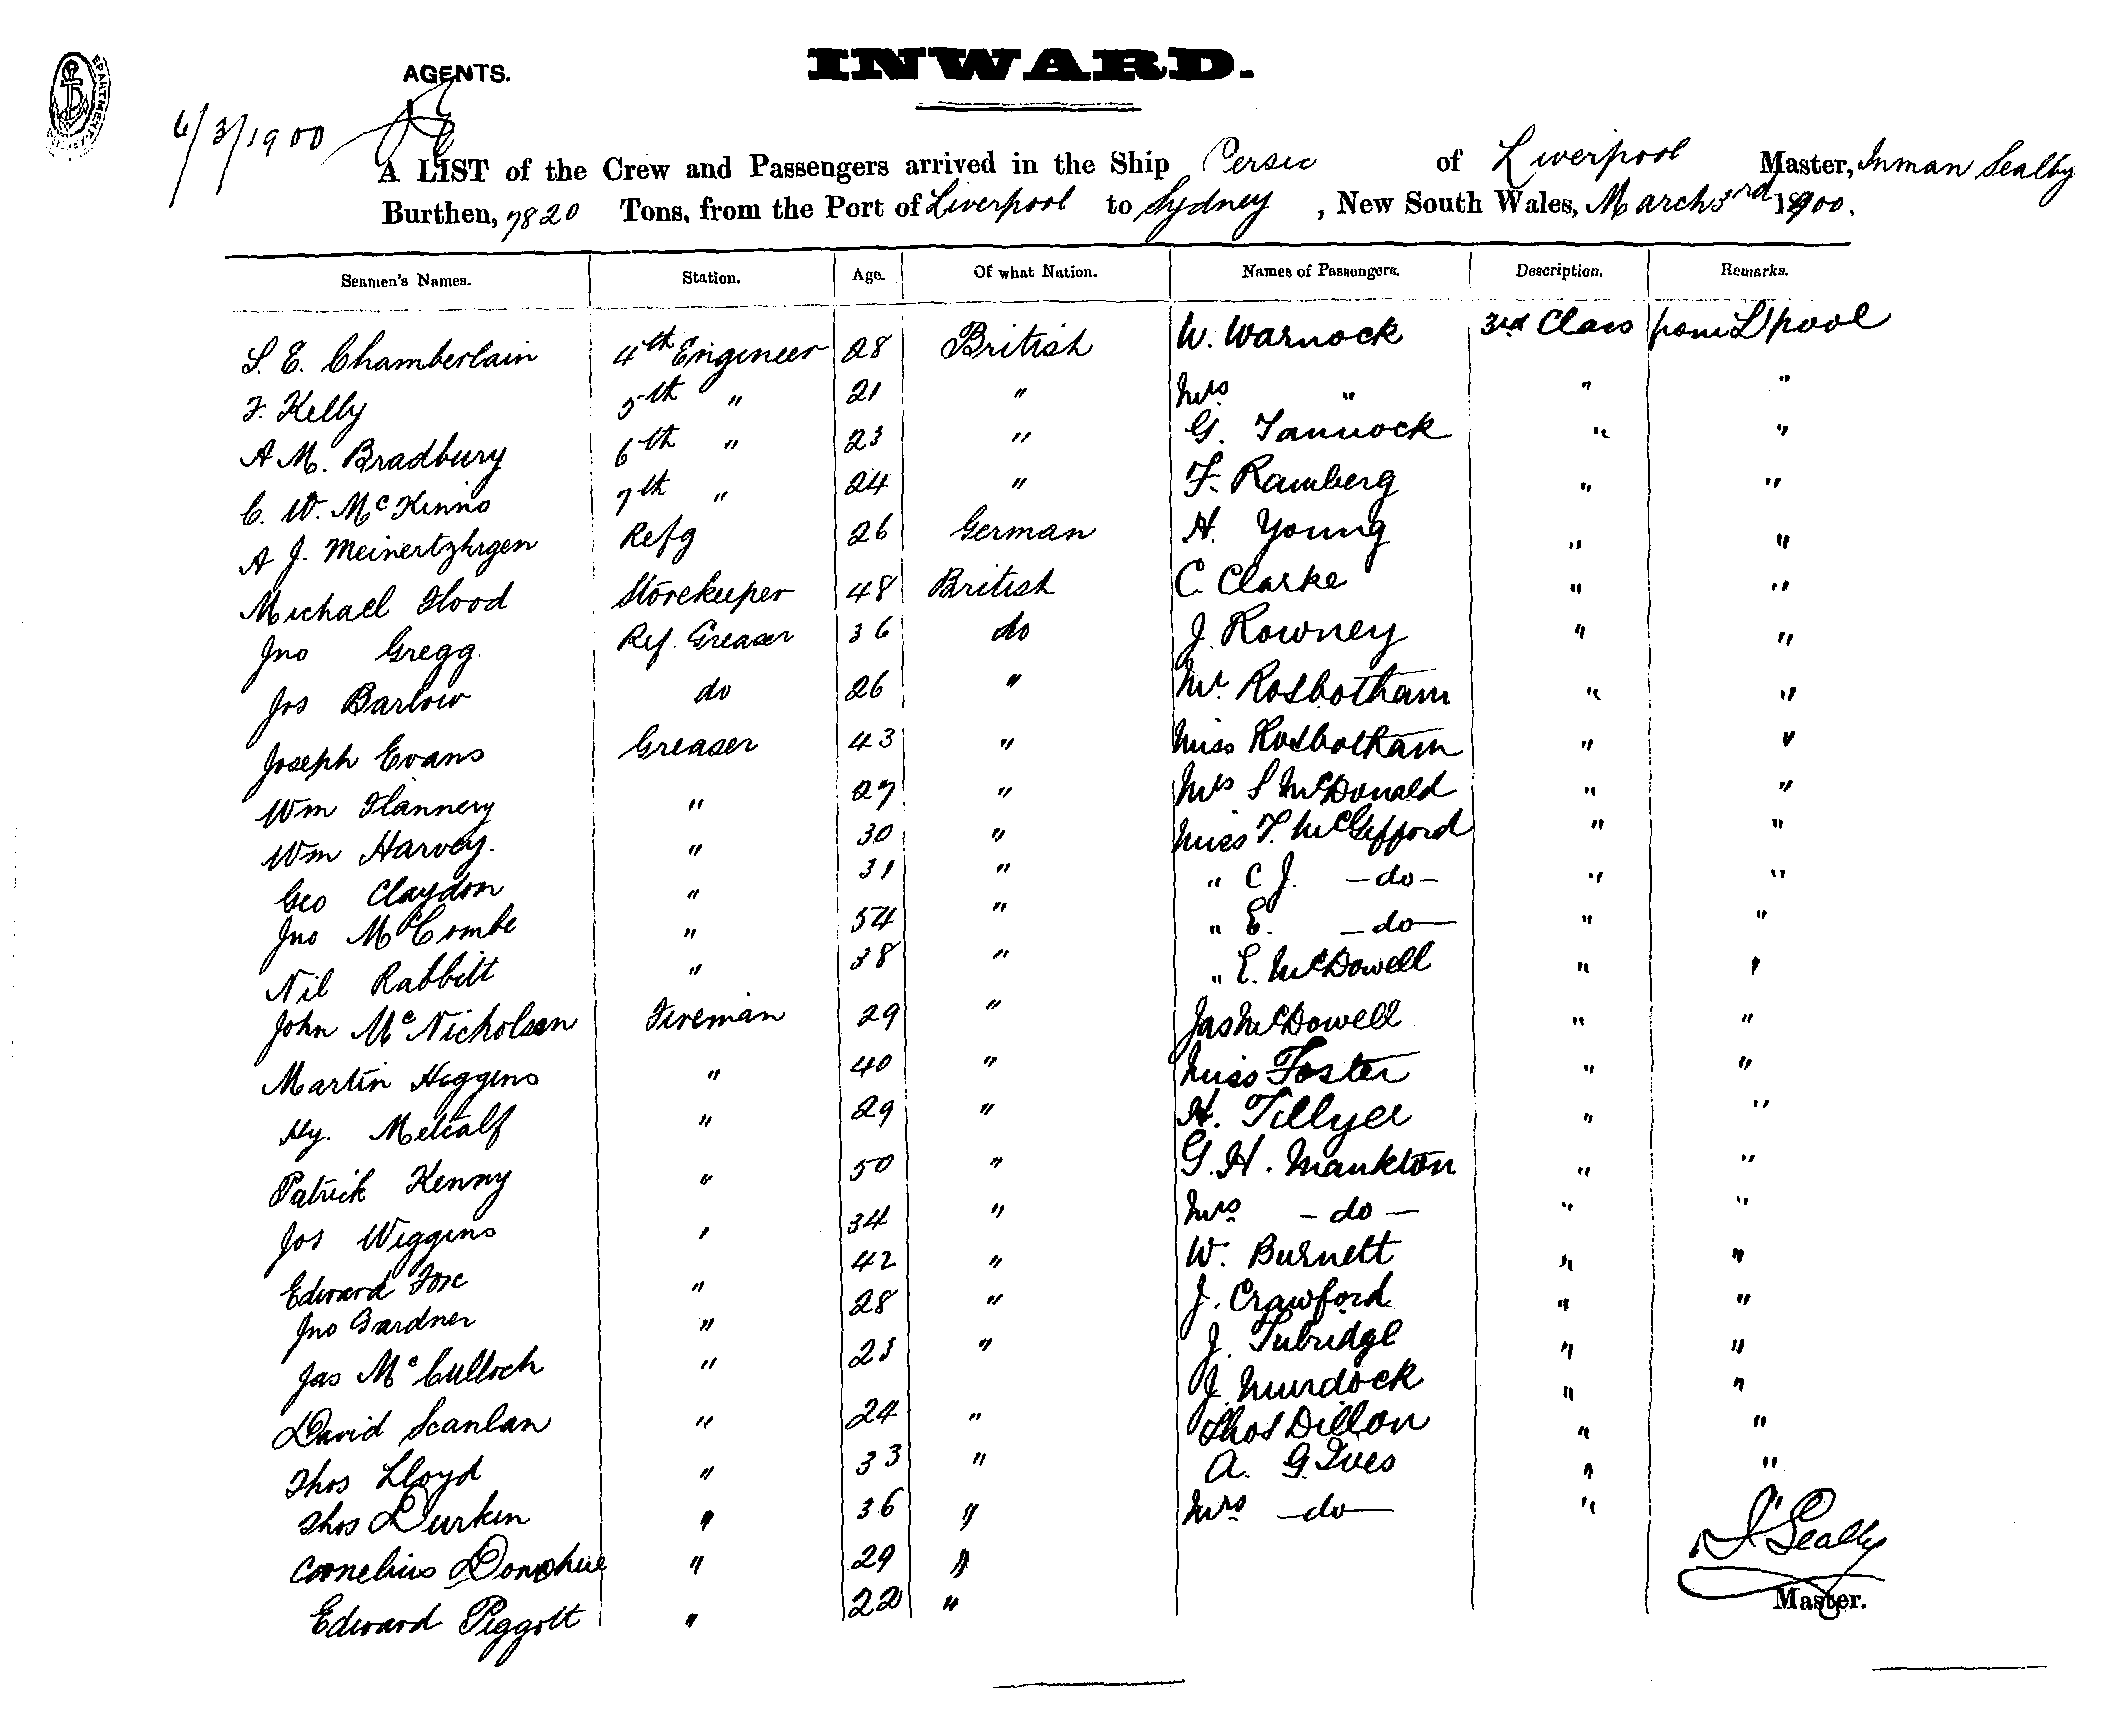 AGENTS.
INWARD.
6/3/1900
A LIST of the Crew and Passengers arrived in the Ship Persic of Liverpool Master, Inman Sealby
Burthen, 7820 Tons, from the Port of Liverpool to Sydney, New South Wales, March 3rd 1900.
Seamen's Names. Station. Age. Of what Nation. Names of Passengers. Description. Remarks.
S. E. Chamberlain 4th Engineer 28 British W. Warnock 3rd Class from L'pool
F. Kelly 5th " 21 " Mrs " " "
A M. Bradbury 6th " 23 " G. Tannock " "
C. W. McKinno 7th " 24 " F. Ramberg " "
A J. Meinertzhagen Refg 26 German H. Young " "
Michael Flood Storekeeper 48 British C. Clarke " "
Jno Gregg. Ref. Greaser 36 do J. Rowney " "
Jos Barlow do 26 " Mr. Rosbotham " "
Joseph Evans Greaser 43 " Miss Rosbotham " "
Wm Flannery " 27 " Mrs S McDonald " "
Wm Harvey. " 30 " Miss T. McGifford " "
Geo Claydon " 31 " " C J. - do - " "
Jno McCombe " 54 " " E. - do - " "
Nil Rabbitt " 38 " " E. McDowell " "
John McNicholson Fireman 29 " Jas McDowell " "
Martin Higgins " 40 " Miss Foster " "
Hy. Metcalf " 29 " H. Tillyer " "
Patrick Kenny " 50 " G. H. Mankton " "
Jos Wiggins " 34 " Mrs - do - " "
Edward Fox " 42 " W. Burnett " "
Jno Gardner " 28 " J. Crawford " "
Jas McCulloch " 23 " J. Tubridge " "
David Scanlan " 24 " J. Murdock " "
Thos Lloyd " 33 " Thos Dillon " "
Thos Durkin " 36 " A. G. Ives " "
Cornelius Donohue " 29 " Mrs - do - "
Edward Piggott " 22 "
I Sealby
Master.